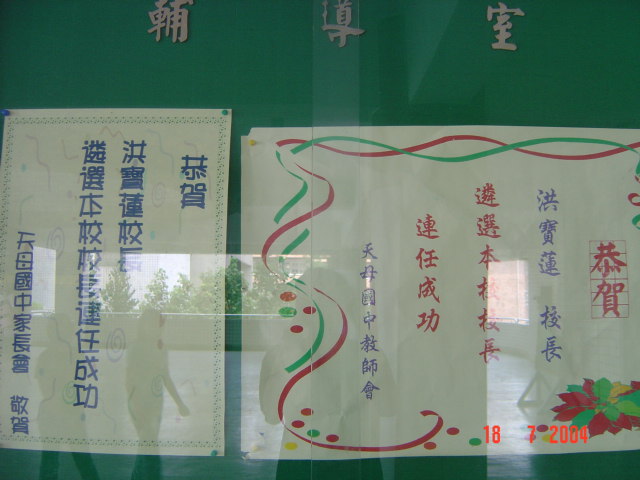 輔導室
恭賀
洪寶蓮 校長
遴選本校校長
連任成功
天母國中教師會
恭賀
洪寶蓮校長
遴選本校校長連任成功
天母國中家長會 敬賀
18 7 2004